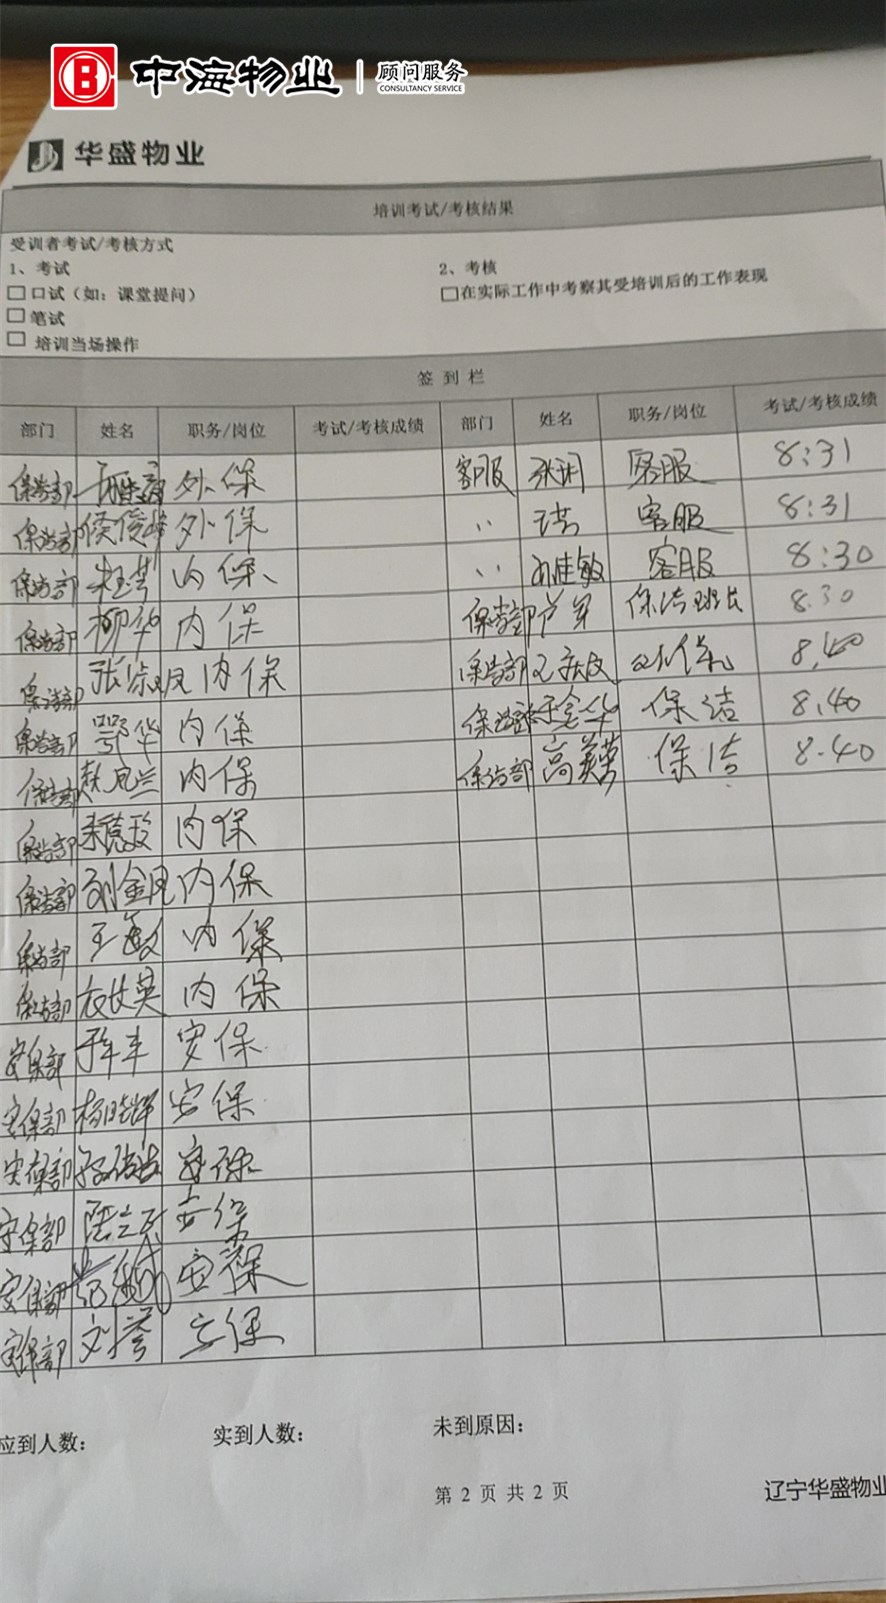 中海物业 顾问服务
CONSULTANCY SERVICE
华盛物业
培训考试/考核结果
受训者考试/考核方式
1、考试 2、考核
口试（如：课堂提问） 在实际工作中考察其受培训后的工作表现
笔试
培训当场操作
签到栏
部门 姓名 职务/岗位 考试/考核成绩 部门 姓名 职务/岗位 考试/考核成绩
保洁部 外保 客服 客服 8:31
保洁部 侯俊峰 外保 〃 客服 8:31
保洁部 内保 〃 孙佳敏 客服 8:30
保洁部 柳华 内保 保洁部 保洁班长 8.30
保洁部 张淑凤 内保 保洁部 8.40
保洁部 鄂华 内保 保洁部 保洁 8.40
保洁部 赵凤兰 内保 保洁部 高英 保洁 8.40
保洁部 内保
保洁部 刘金凤 内保
保洁部 王敏 内保
保洁部 内保
安保部 安保
安保部 杨晓辉 安保
安保部 安保
安保部 安保
安保部 安保
安保部 刘 安保
应到人数： 实到人数： 未到原因：
第 2 页 共 2 页 辽宁华盛物业